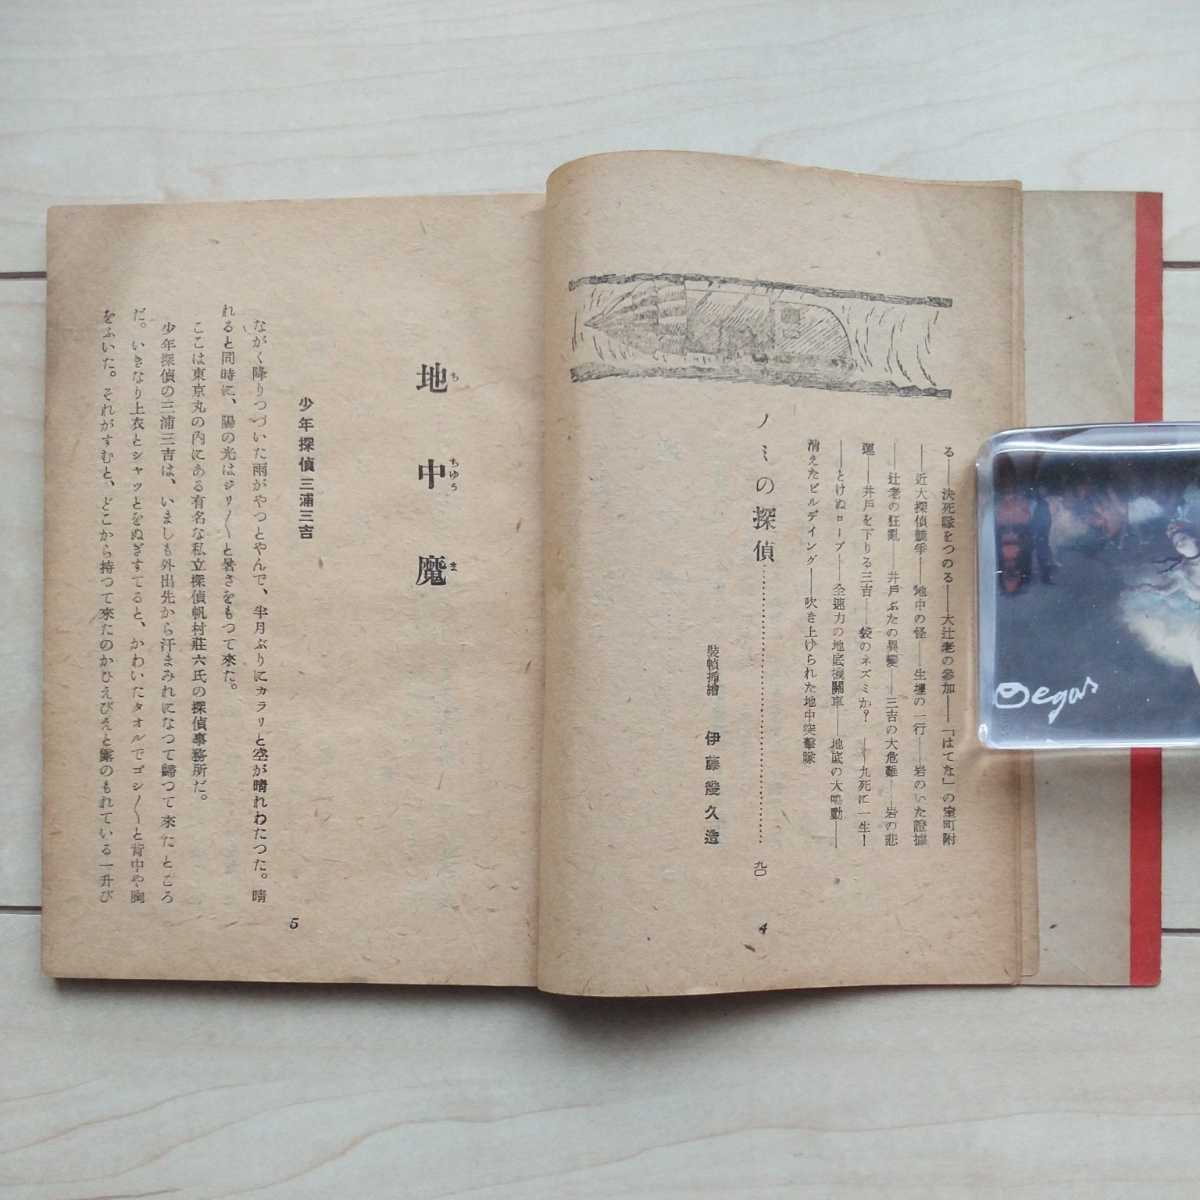 る――決死隊をつのる――大辻老の參加――「はてな」の室町附
近大探偵競爭――地中の怪――生埋の一行――岩のいた證據
――辻老の狂亂――井戸ぶたの異變――三吉の大危難――岩の悲
運――井戸を下りる三吉――袋のネズミか？――九死に一生！
――とけぬロープ――全速力の地底機關車――地底の大鳴動――
消えたビルデイング――吹き上げられた地中突撃隊
ノミの探偵……………………………………九〇
裝幀揷繪 伊藤幾久造
4
地中魔
ち ちゆう ま
少年探偵三浦三吉
ながく降りつづいた雨がやつとやんで、半月ぶりにカラリと空が晴れわたつた。晴
れると同時に、陽の光はジリ〳〵と暑さをもつて來た。
ここは東京丸の內にある有名な私立探偵帆村莊六氏の探偵事務所だ。
少年探偵の三浦三吉は、いましも外出先から汗まみれになつて歸つて來たところ
だ。いきなり上衣とシャッとをぬぎすてると、かわいたタオルでゴシ〳〵と背中や胸
をふいた。それがすむと、どこから持つて來たのかひえびえと露のもれている一升び
5
Degas